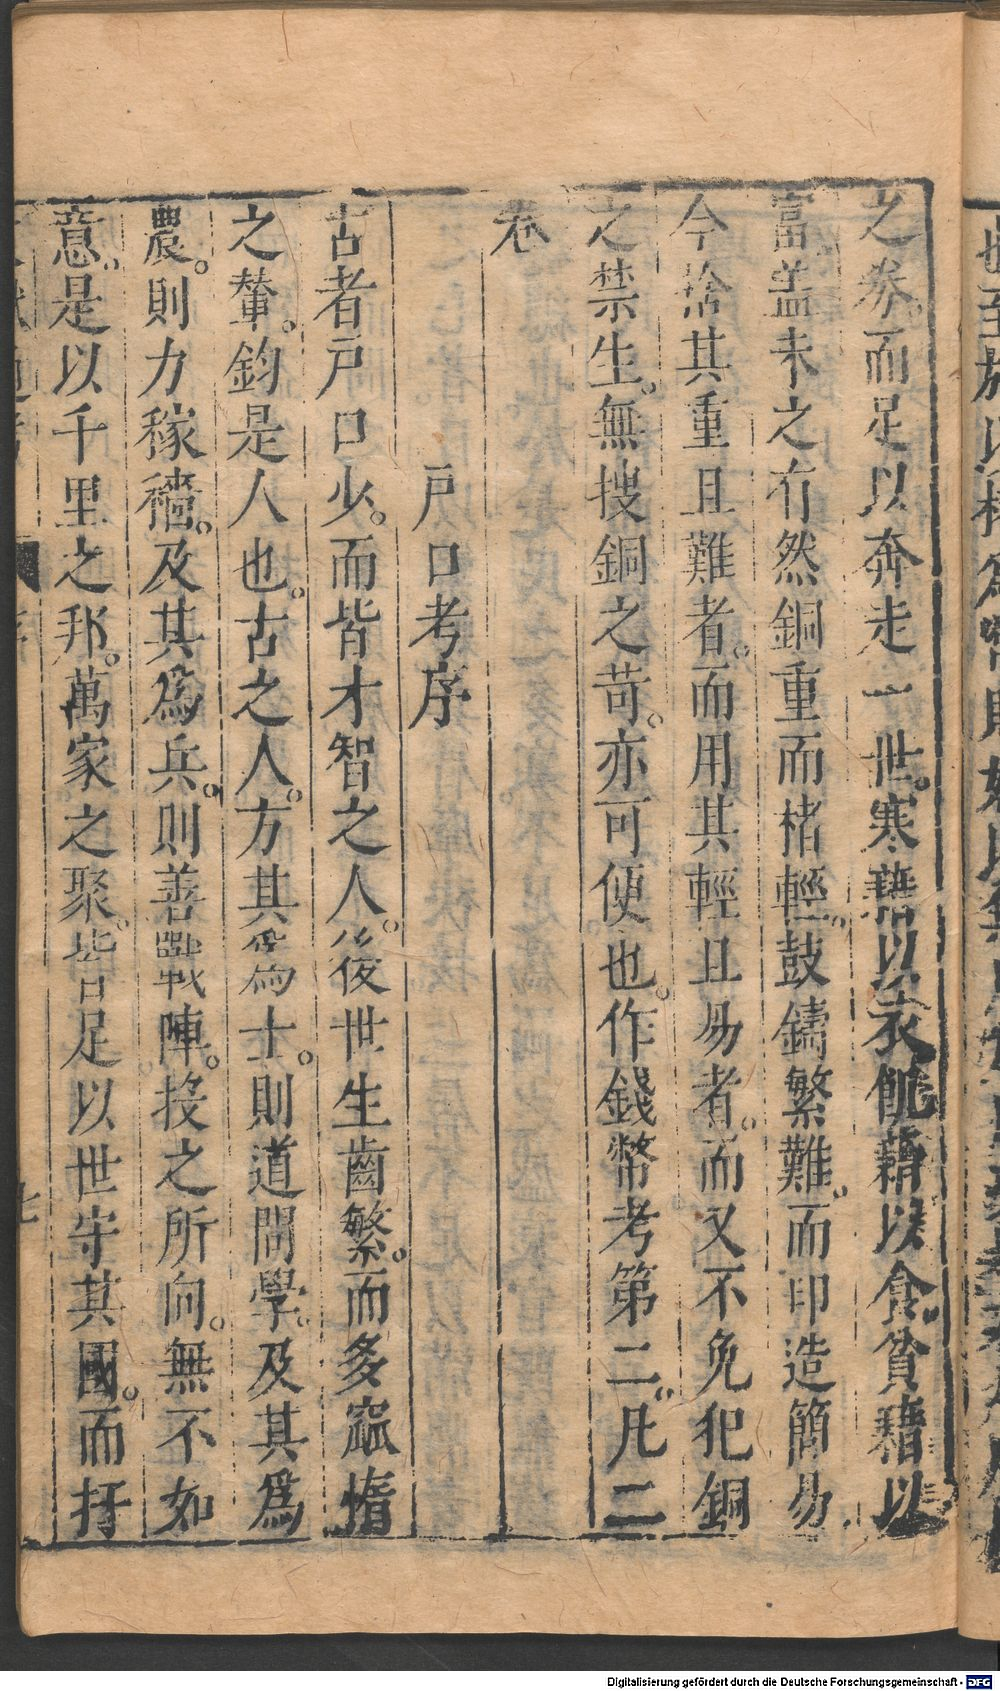 之劵。而足以奔走一世。寒藉以衣飢藉以食。貧藉以
富盖未之有然銅重而楮輕。鼓鑄繁難。而印造簡易.
今捨其重且難者。而用其輕且易者。而又不免犯銅
之禁生。無搜銅之苛。亦可便也。作錢幣考第二。凡二
卷
戸口考序
古者戸口少。而皆才智之人。後世生齒繁。而多窳惰
之輩。鈞是人也。古之人。方其爲士。則道問學。及其爲
農。則力稼穡。及其爲兵。則善戰陣。投之所向。無不如
意。是以千里之邦。萬家之聚。皆足以世守其國。而扞
Digitalisierung gefördert durch die Deutsche Forschungsgemeinschaft - DFG